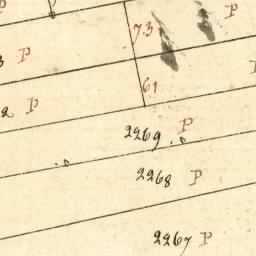 P P
73
3 P P
61
2 P
2269 P
2268 P
2267 P